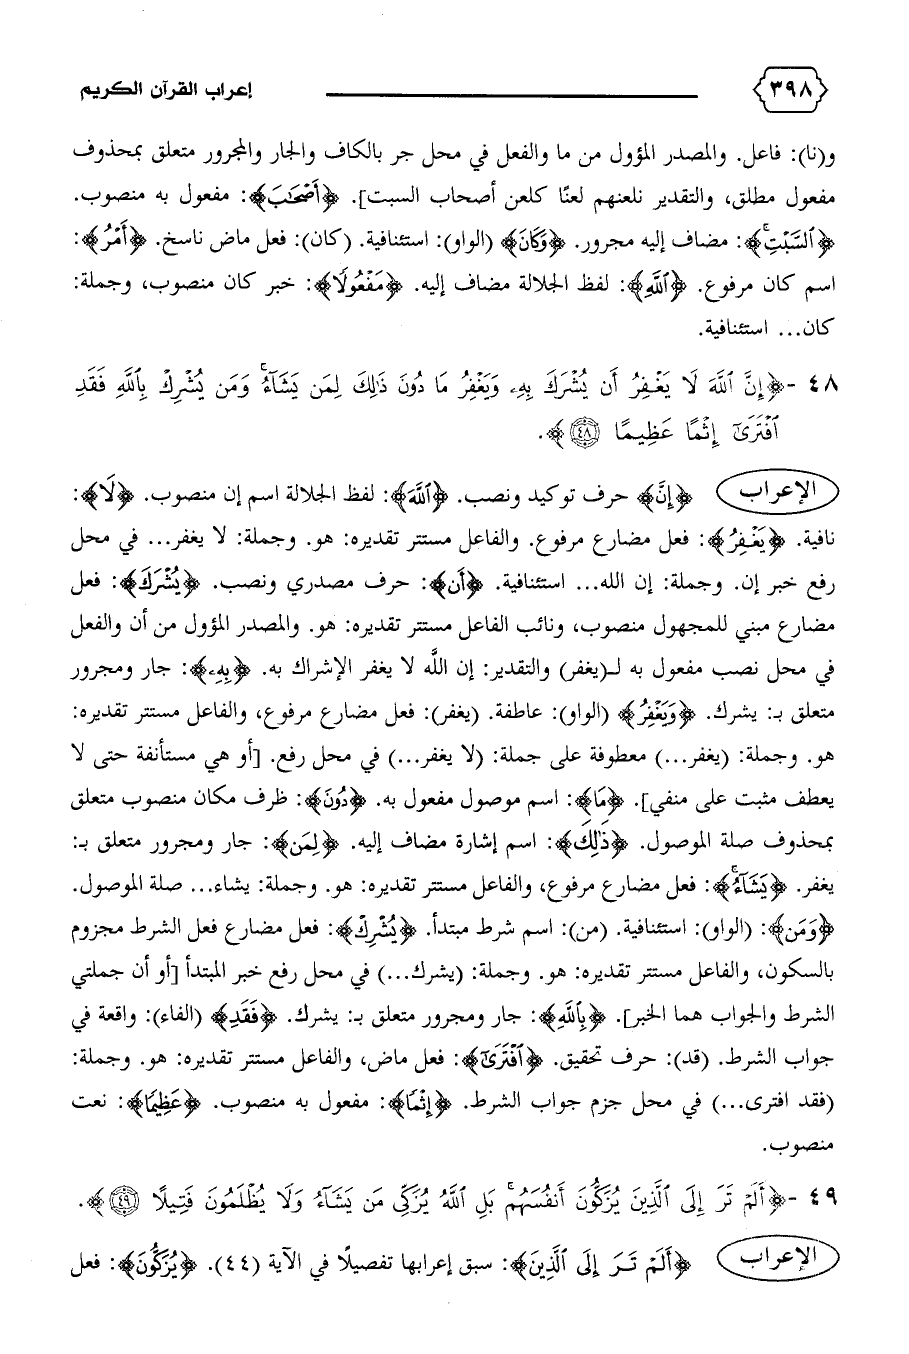 ٣٩٨ إعراب القرآن الكريم
و(نا): فاعل. والمصدر المؤول من ما والفعل في محل جر بالكاف والجار والمجرور متعلق بمحذوف
مفعول مطلق، والتقدير نلعنهم لعنًا كلعن أصحاب السبت]. ﴿أَصْحَٰبَ﴾: مفعول به منصوب.
﴿ٱلسَّبْتِۚ﴾: مضاف إليه مجرور. ﴿وَكَانَ﴾ (الواو): استئنافية. (كان): فعل ماض ناسخ. ﴿أَمْرُ﴾:
اسم كان مرفوع. ﴿ٱللَّهِ﴾: لفظ الجلالة مضاف إليه. ﴿مَفْعُولًا﴾: خبر كان منصوب، وجملة:
كان... استئنافية.
٤٨ -﴿إِنَّ ٱللَّهَ لَا يَغْفِرُ أَن يُشْرَكَ بِهِۦ وَيَغْفِرُ مَا دُونَ ذَٰلِكَ لِمَن يَشَآءُۚ وَمَن يُشْرِكْ بِٱللَّهِ فَقَدِ
ٱفْتَرَىٰٓ إِثْمًا عَظِيمًا ۝٤٨﴾.
الإعراب ﴿إِنَّ﴾ حرف توكيد ونصب. ﴿ٱللَّهَ﴾: لفظ الجلالة اسم إن منصوب. ﴿لَا﴾:
نافية. ﴿يَغْفِرُ﴾: فعل مضارع مرفوع. والفاعل مستتر تقديره: هو. وجملة: لا يغفر... في محل
رفع خبر إن. وجملة: إن الله... استئنافية. ﴿أَن﴾: حرف مصدري ونصب. ﴿يُشْرَكَ﴾: فعل
مضارع مبني للمجهول منصوب، ونائب الفاعل مستتر تقديره: هو. والمصدر المؤول من أن والفعل
في محل نصب مفعول به لـ(يغفر) والتقدير: إن اللَّه لا يغفر الإشراك به. ﴿بِهِۦ﴾: جار ومجرور
متعلق بـ: يشرك. ﴿وَيَغْفِرُ﴾ (الواو): عاطفة. (يغفر): فعل مضارع مرفوع، والفاعل مستتر تقديره:
هو. وجملة: (يغفر...) معطوفة على جملة: (لا يغفر...) في محل رفع. [أو هي مستأنفة حتى لا
يعطف مثبت على منفي]. ﴿مَا﴾: اسم موصول مفعول به. ﴿دُونَ﴾: ظرف مكان منصوب متعلق
بمحذوف صلة الموصول. ﴿ذَٰلِكَ﴾: اسم إشارة مضاف إليه. ﴿لِمَن﴾: جار ومجرور متعلق بـ:
يغفر. ﴿يَشَآءُۚ﴾: فعل مضارع مرفوع، والفاعل مستتر تقديره: هو. وجملة: يشاء... صلة الموصول.
﴿وَمَن﴾: (الواو): استئنافية. (من): اسم شرط مبتدأ. ﴿يُشْرِكْ﴾: فعل مضارع فعل الشرط مجزوم
بالسكون، والفاعل مستتر تقديره: هو. وجملة: (يشرك...) في محل رفع خبر المبتدأ [أو أن جملتي
الشرط والجواب هما الخبر]. ﴿بِٱللَّهِ﴾: جار ومجرور متعلق بـ: يشرك. ﴿فَقَدِ﴾ (الفاء): واقعة في
جواب الشرط. (قد): حرف تحقيق. ﴿ٱفْتَرَىٰٓ﴾: فعل ماض، والفاعل مستتر تقديره: هو. وجملة:
(فقد افترى...) في محل جزم جواب الشرط. ﴿إِثْمًا﴾: مفعول به منصوب. ﴿عَظِيمًا﴾: نعت
منصوب.
٤٩ -﴿أَلَمْ تَرَ إِلَى ٱلَّذِينَ يُزَكُّونَ أَنفُسَهُمۚ بَلِ ٱللَّهُ يُزَكِّى مَن يَشَآءُ وَلَا يُظْلَمُونَ فَتِيلًا ۝٤٩﴾.
الإعراب ﴿أَلَمْ تَرَ إِلَى ٱلَّذِينَ﴾: سبق إعرابها تفصيلًا في الآية (٤٤). ﴿يُزَكُّونَ﴾: فعل